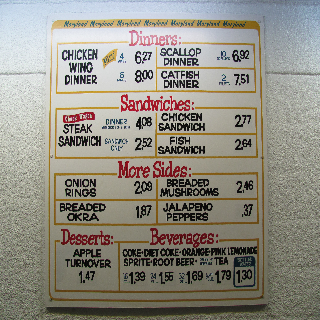 Maryland Maryland Maryland Maryland Maryland Maryland Maryland
Dinners:
CHICKEN WING DINNER 4 6,27
6 8,00
SCALLOP DINNER 10 6,92
CATFISH DINNER 2 7,51
Sandwiches:
STEAK SANDWICH DINNER 4,08
SANDWICH ONLY 2,52
CHICKEN SANDWICH 2,77
FISH SANDWICH 2,64
More Sides:
ONION RINGS 2,09
BREADED MUSHROOMS 2,46
BREADED OKRA 1,87
JALAPENO PEPPERS ,37
Desserts:
APPLE TURNOVER
1,47
Beverages:
COKE·DIET COKE·ORANGE·PINK LEMONADE
SPRITE·ROOT BEER· TEA
1,39 1,55 1,69 1,79 1,30